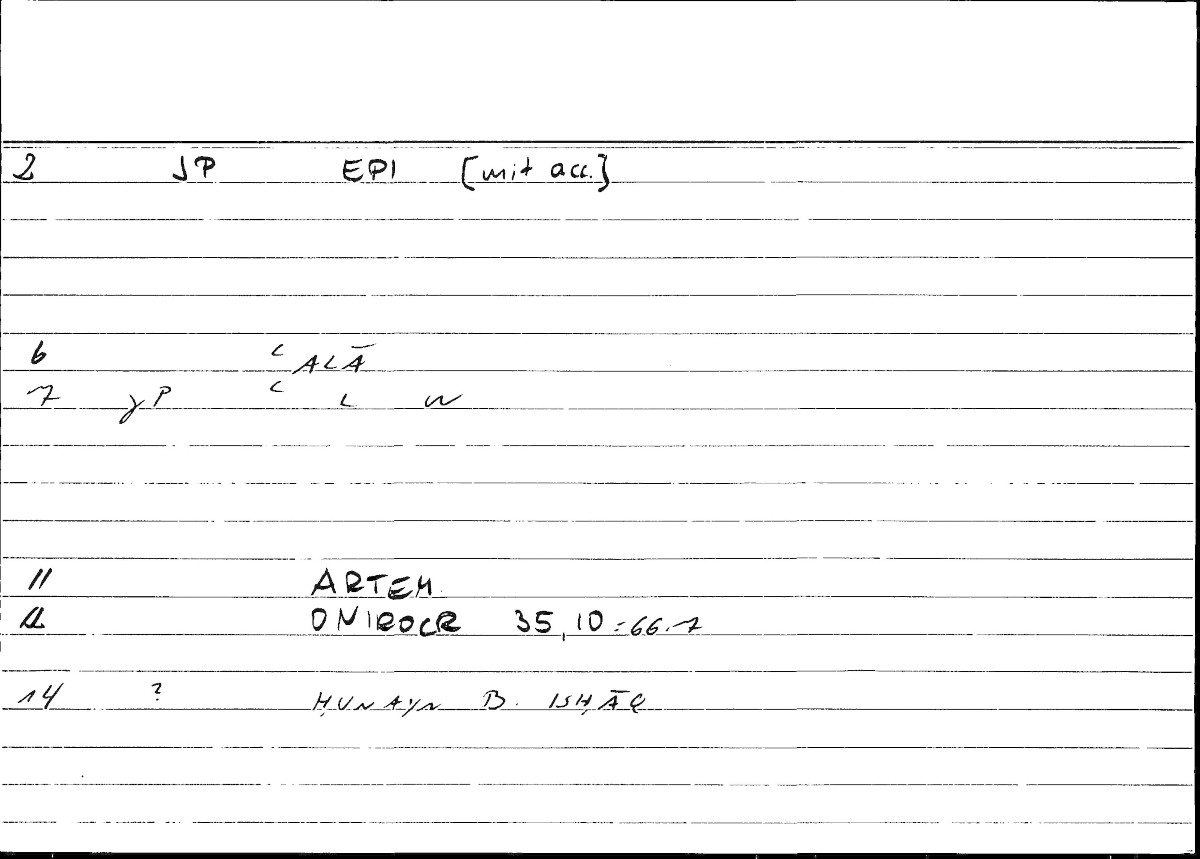 2 JP EPI [mit acc.]
6 ʿALĀ
7 yP ʿ L W
11 ARTEM.
12 ONIROCR 35,10 = 66.7
14 ? ḤUNAYN B. ISḤĀQ